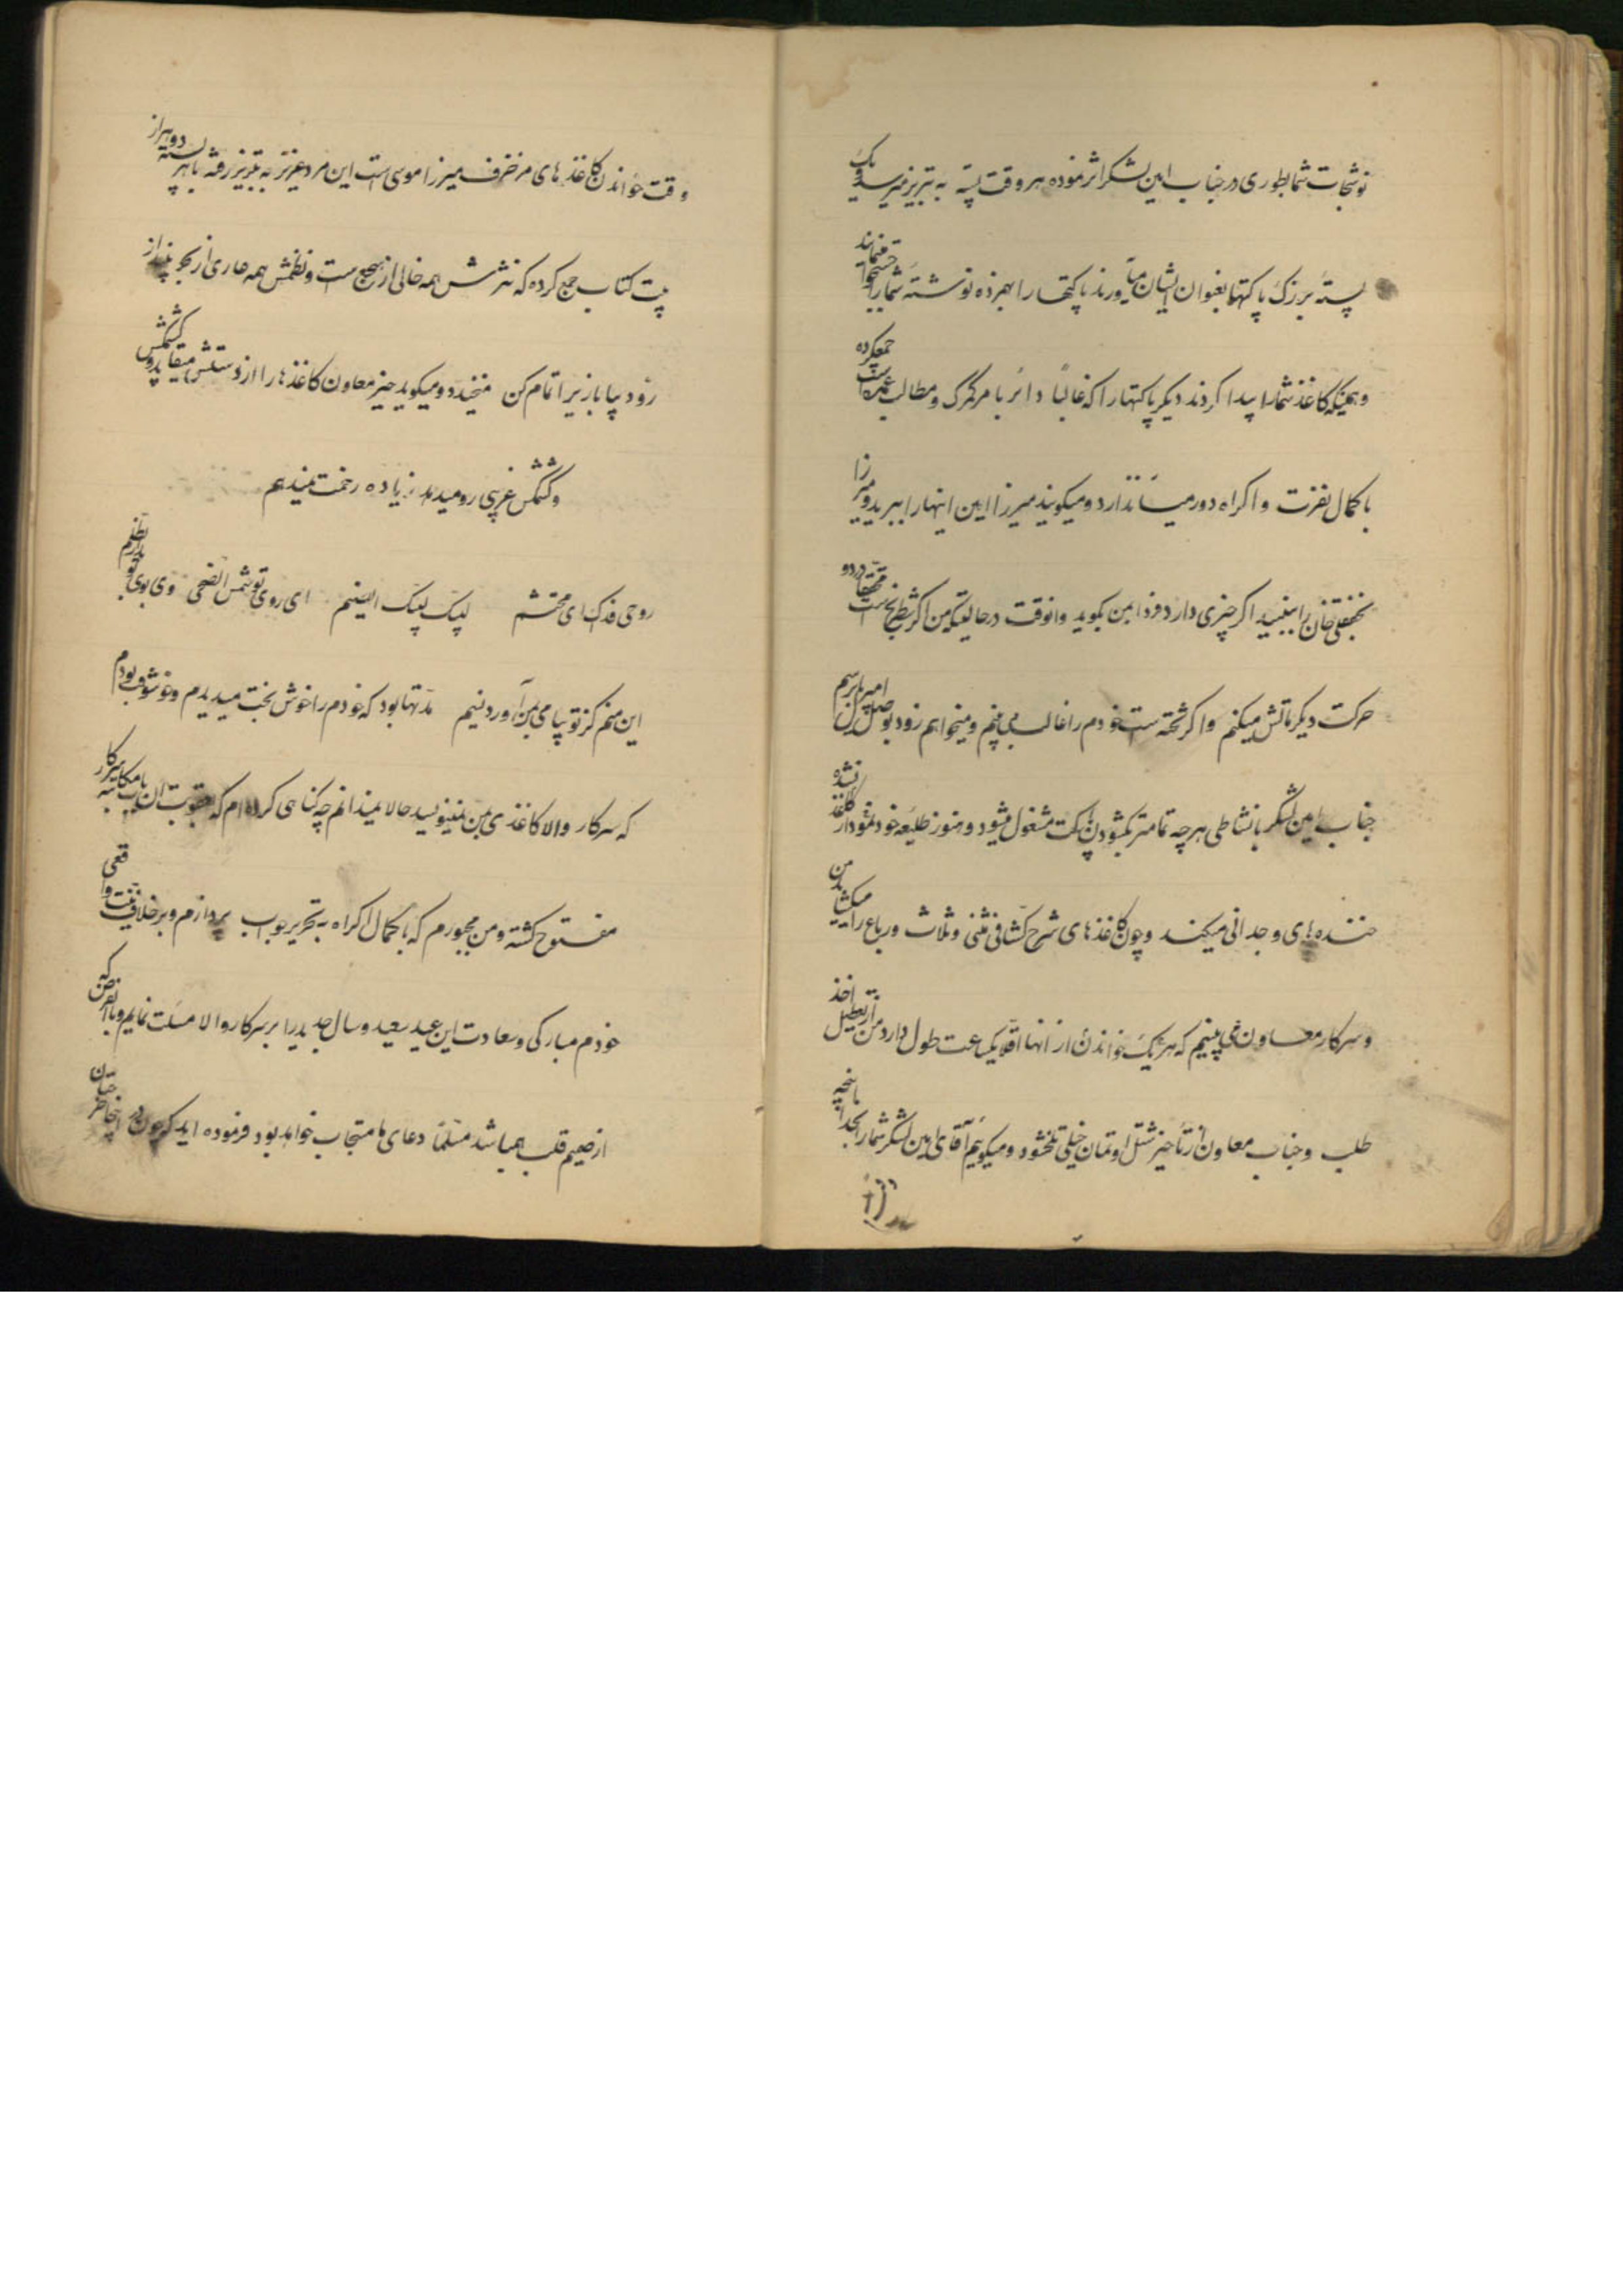 نوشتجات شما بطوری در جناب امین لشکر اثر نموده هر وقت پسته به تبریز میرسد و یک
پستهٔ بزرگ پاکتها بعنوان ایشان میآورند پاکتها را بهم زده نوشتهٔ شما را جستجو مینمایند
و همینکه کاغذ شما را پیدا کردند دیگر پاکتها را که غالباً دائر با مر گمرک و مطالب عمده است جمع کرده
با کمال نفرت و اکراه دور میاندازد و میگویند میرزا امین اینها را ببرید و میرزا
نجفقلی خان را ببینید اگر چیزی دارد فردا بمن بگوید وانوقت در حالتیکه من اگر شطرنج است محققاً در دو
حرکت دیگر ماتش میکنم و اگر تخته است خودم را غالب می بینم و میخواهم زود بوصل دل امیر برسم
جناب امین لشکر با نشاطی هر چه تمامتر بگشودن پاکت مشغول میشود و هنوز طلیعهٔ خود نمودار نشده کاغذ
خنده های وجدانی میکند و چون کاغذهای شرح کشافی مثنی و ثلاث و رباع را میکشاید من
و سرکار معاون می بینیم که هر یک خواندن از انها اقلاً یکساعت طول دارد من از تعطیل اخذ
طلب و جناب معاون از تأخیر شتل اوتمان خیلی تلخ شود و میگوئیم آقای امین لشکر شما را بخدا باینچه
وقت خواندن کاغذهای مزخرف میرزا موسی است این مرد عزیز به تبریز رفته با هر پسته دو هزار
بیت کتاب جمع کرده که نثرش همه خالی از سجع است و نظمش همه عاری از بحر بیندازد
زود بیا بازیرا تمام کن میخندد و میگوید خیر معاون کاغذها را از دستش میقاپد و
و کشمش غرپی رو میدهد زیاده زحمت نمیدهم
روحی فداک ای محتشم لبیک لبیک ای صنم ای روی تو شمس الضحی وی بوی تو بدر ظلم
این منم کز تو پیامی بمن آوردنیم مدتها بود که خودم را خوش بخت میدیدم و خوشوقت بودم
که سرکار والا کاغذی بمن نمینویسید حالا نمیدانم چه گناهی کرده ام که بعقوبت ان باب مکاتبه سرکار
مفتوح گشته و من مجبورم که با کمال اکراه به تحریر جواب پردازم و بر خلاف نیت واقعی
خودم مبارکی و سعادت این عید سعید و سال جدید را بر سرکار والا مسئلت نمایم و بالفرض که
از صمیم قلب هم باشد مسلماً دعای ما مستجاب نخواهد بود فرموده اید که چون در